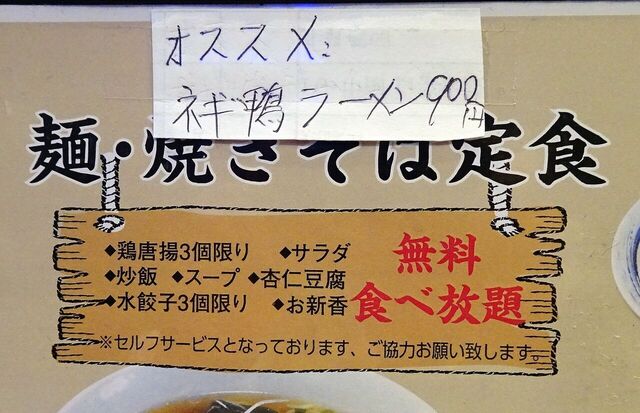 オススメ:
ネギ鴨ラーメン900円
麺・焼きそば定食
◆鶏唐揚3個限り ◆サラダ
◆炒飯 ◆スープ ◆杏仁豆腐
◆水餃子3個限り ◆お新香
無料
食べ放題
※セルフサービスとなっております、ご協力お願い致します。